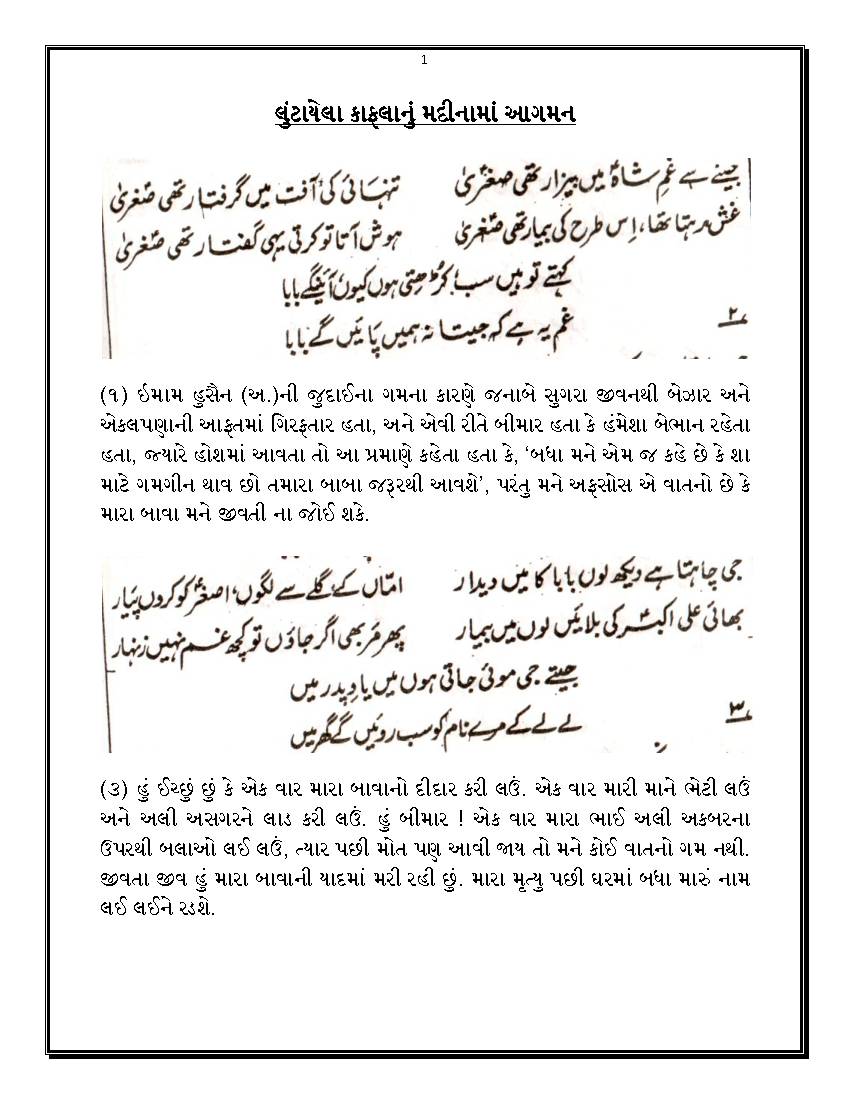 1
લુંટાયેલા કાફલાનું મદીનામાં આગમન
جینے سے غمِ شاہؑ میں بیزار تھی صغریٰؑ تنہائی کی آفت میں گرفتار تھی صغریٰؑ
غش رہتا تھا، اِس طرح کی بیمار تھی صغریٰؑ ہوش آتا تو کرتی یہی گفتار تھی صغریٰؑ
کہتے تو ہیں سب کُڑھتی ہوں کیوں آئینگے بابا
غم یہ ہے کہ جیتا نہ ہمیں پائیں گے بابا
۲
(૧) ઇમામ હુસૈન (અ.)ની જુદાઈના ગમના કારણે જનાબે સુગરા જીવનથી બેઝાર અને
એકલપણાની આફતમાં ગિરફતાર હતા, અને એવી રીતે બીમાર હતા કે હંમેશા બેભાન રહેતા
હતા, જ્યારે હોશમાં આવતા તો આ પ્રમાણે કહેતા હતા કે, ‘બધા મને એમ જ કહે છે કે શા
માટે ગમગીન થાવ છો તમારા બાબા જરૂરથી આવશે’, પરંતુ મને અફસોસ એ વાતનો છે કે
મારા બાવા મને જીવતી ના જોઈ શકે.
جی چاہتا ہے دیکھ لوں بابا کا میں دیدار امّاں کے گلے سے لگوں، اصغرؑ کو کروں پیار
بھائی علی اکبرؑ کی بلائیں لوں میں بیمار پھر مر بھی اگر جاؤں تو کچھ غم نہیں زنہار
جیتے جی موئی جاتی ہوں میں یادِ پدر میں
لے لے کے مرے نام کو سب روئیں گے گھر میں
۳
(૩) હું ઈચ્છું છું કે એક વાર મારા બાવાનો દીદાર કરી લઉં. એક વાર મારી માને ભેટી લઉં
અને અલી અસગરને લાડ કરી લઉં. હું બીમાર ! એક વાર મારા ભાઈ અલી અકબરના
ઉપરથી બલાઓ લઈ લઉં, ત્યાર પછી મોત પણ આવી જાય તો મને કોઈ વાતનો ગમ નથી.
જીવતા જીવ હું મારા બાવાની યાદમાં મરી રહી છું. મારા મૃત્યુ પછી ઘરમાં બધા મારું નામ
લઈ લઈને રડશે.